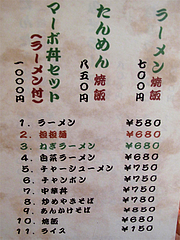 ラーメン 焼飯
七〇〇円
たんめん 焼飯
八五〇円
マーボ丼セット
(ラーメン付)
一〇〇〇円
1. ラーメン ¥580
2. 担担麺 ¥680
3. ねぎラーメン ¥680
4. 白菜ラーメン ¥680
5. チャーシューメン ¥750
6. チャンポン ¥750
7. 中華丼 ¥750
8. 炒めやきそば ¥750
9. あんかけそば ¥780
10. 焼飯 ¥680
11. ライス ¥150